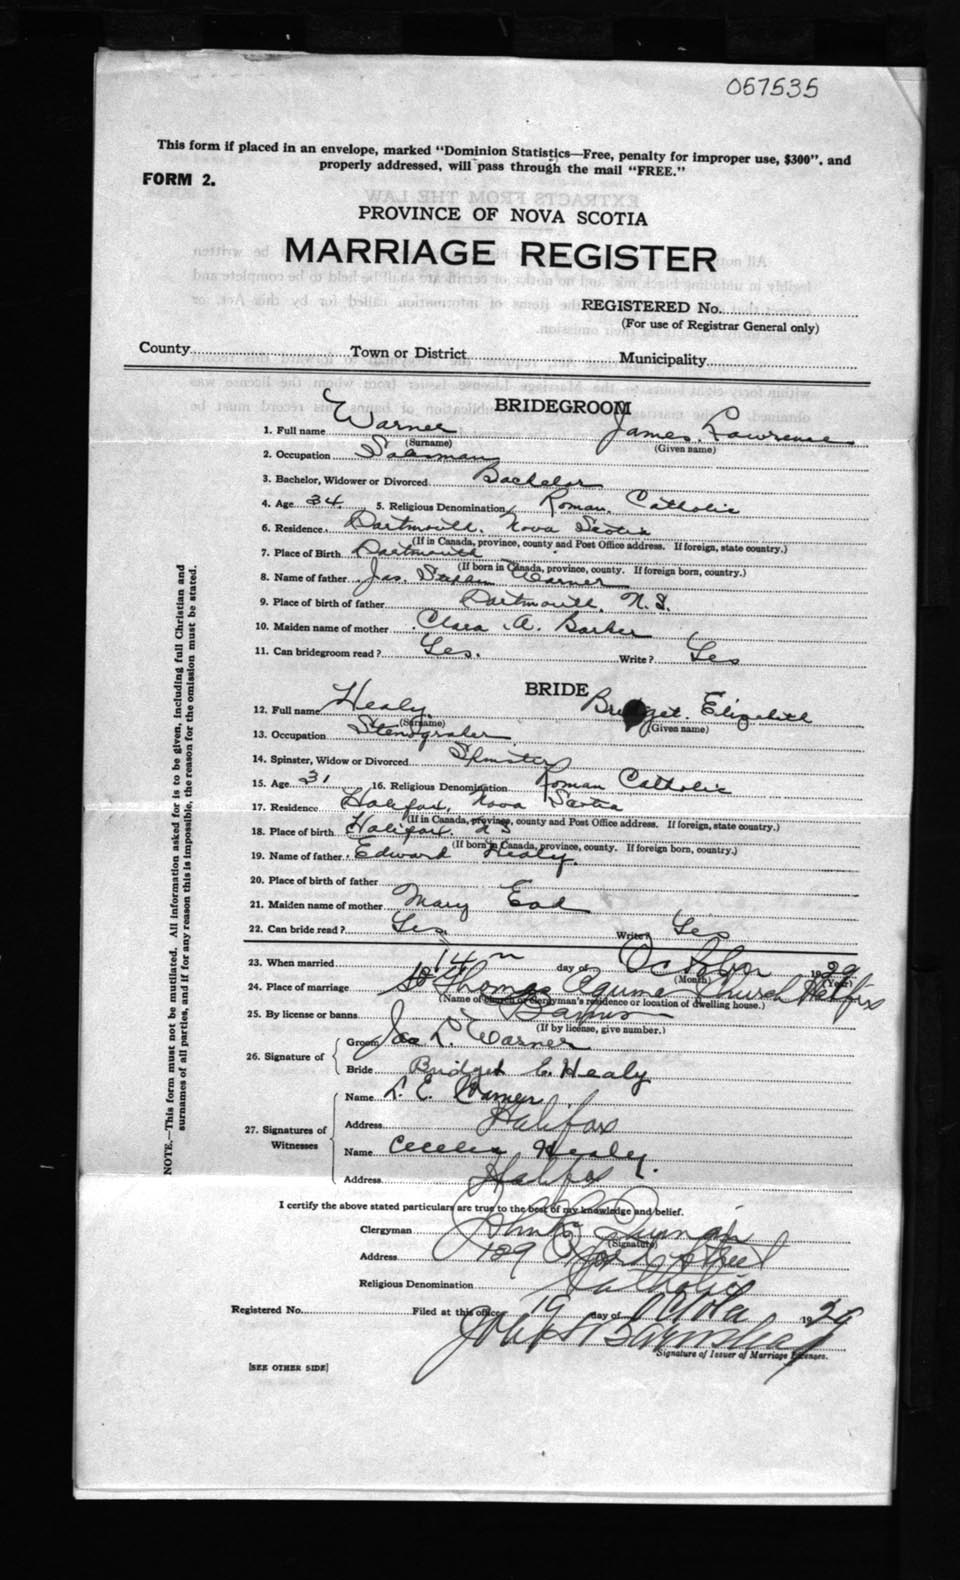 057535
This form if placed in an envelope, marked "Dominion Statistics—Free, penalty for improper use, $300", and
properly addressed, will pass through the mail "FREE."
FORM 2.
PROVINCE OF NOVA SCOTIA
MARRIAGE REGISTER
REGISTERED No.
(For use of Registrar General only)
County Town or District Municipality
BRIDEGROOM
1. Full name Warner James Lawrence
(Surname) (Given name)
2. Occupation Salesman
3. Bachelor, Widower or Divorced Bachelor
4. Age 34 5. Religious Denomination Roman Catholic
6. Residence Dartmouth, Nova Scotia
(If in Canada, province, county and Post Office address. If foreign, state country.)
7. Place of Birth Dartmouth
(If born in Canada, province, county. If foreign born, country.)
8. Name of father Jas. Stephen Warner
9. Place of birth of father Dartmouth, N.S.
10. Maiden name of mother Clara A. Barker
11. Can bridegroom read? Yes. Write? Yes
BRIDE
12. Full name Healy Bridget Elizabeth
(Surname) (Given name)
13. Occupation Stenographer
14. Spinster, Widow or Divorced Spinster
15. Age 31 16. Religious Denomination Roman Catholic
17. Residence Halifax, Nova Scotia
(If in Canada, province, county and Post Office address. If foreign, state country.)
18. Place of birth Halifax, N S
(If born in Canada, province, county. If foreign born, country.)
19. Name of father Edward Healy.
20. Place of birth of father
21. Maiden name of mother Mary
22. Can bride read? Yes Write? Yes
23. When married 14 day of October 1929
(Month) (Year)
24. Place of marriage St Thomas Church Halifax
(Name of church or clergyman's residence or location of dwelling house.)
25. By license or banns Banns
(If by license, give number.)
26. Signature of
Groom Jas L. Warner
Bride Bridget E. Healy
27. Signatures of Witnesses
Name L. E.
Address Halifax
Name Cecelia Healy.
Address Halifax
I certify the above stated particulars are true to the best of my knowledge and belief.
Clergyman
(Signature)
Address 129 Oxford Street
Religious Denomination Catholic
Registered No. Filed at this office 19 day of 1929
Signature of Issuer of Marriage Licenses.
[SEE OTHER SIDE]
NOTE.—This form must not be mutilated. All information asked for is to be given, including full Christian and
surnames of all parties, and if for any reason this is impossible, the reason for the omission must be stated.